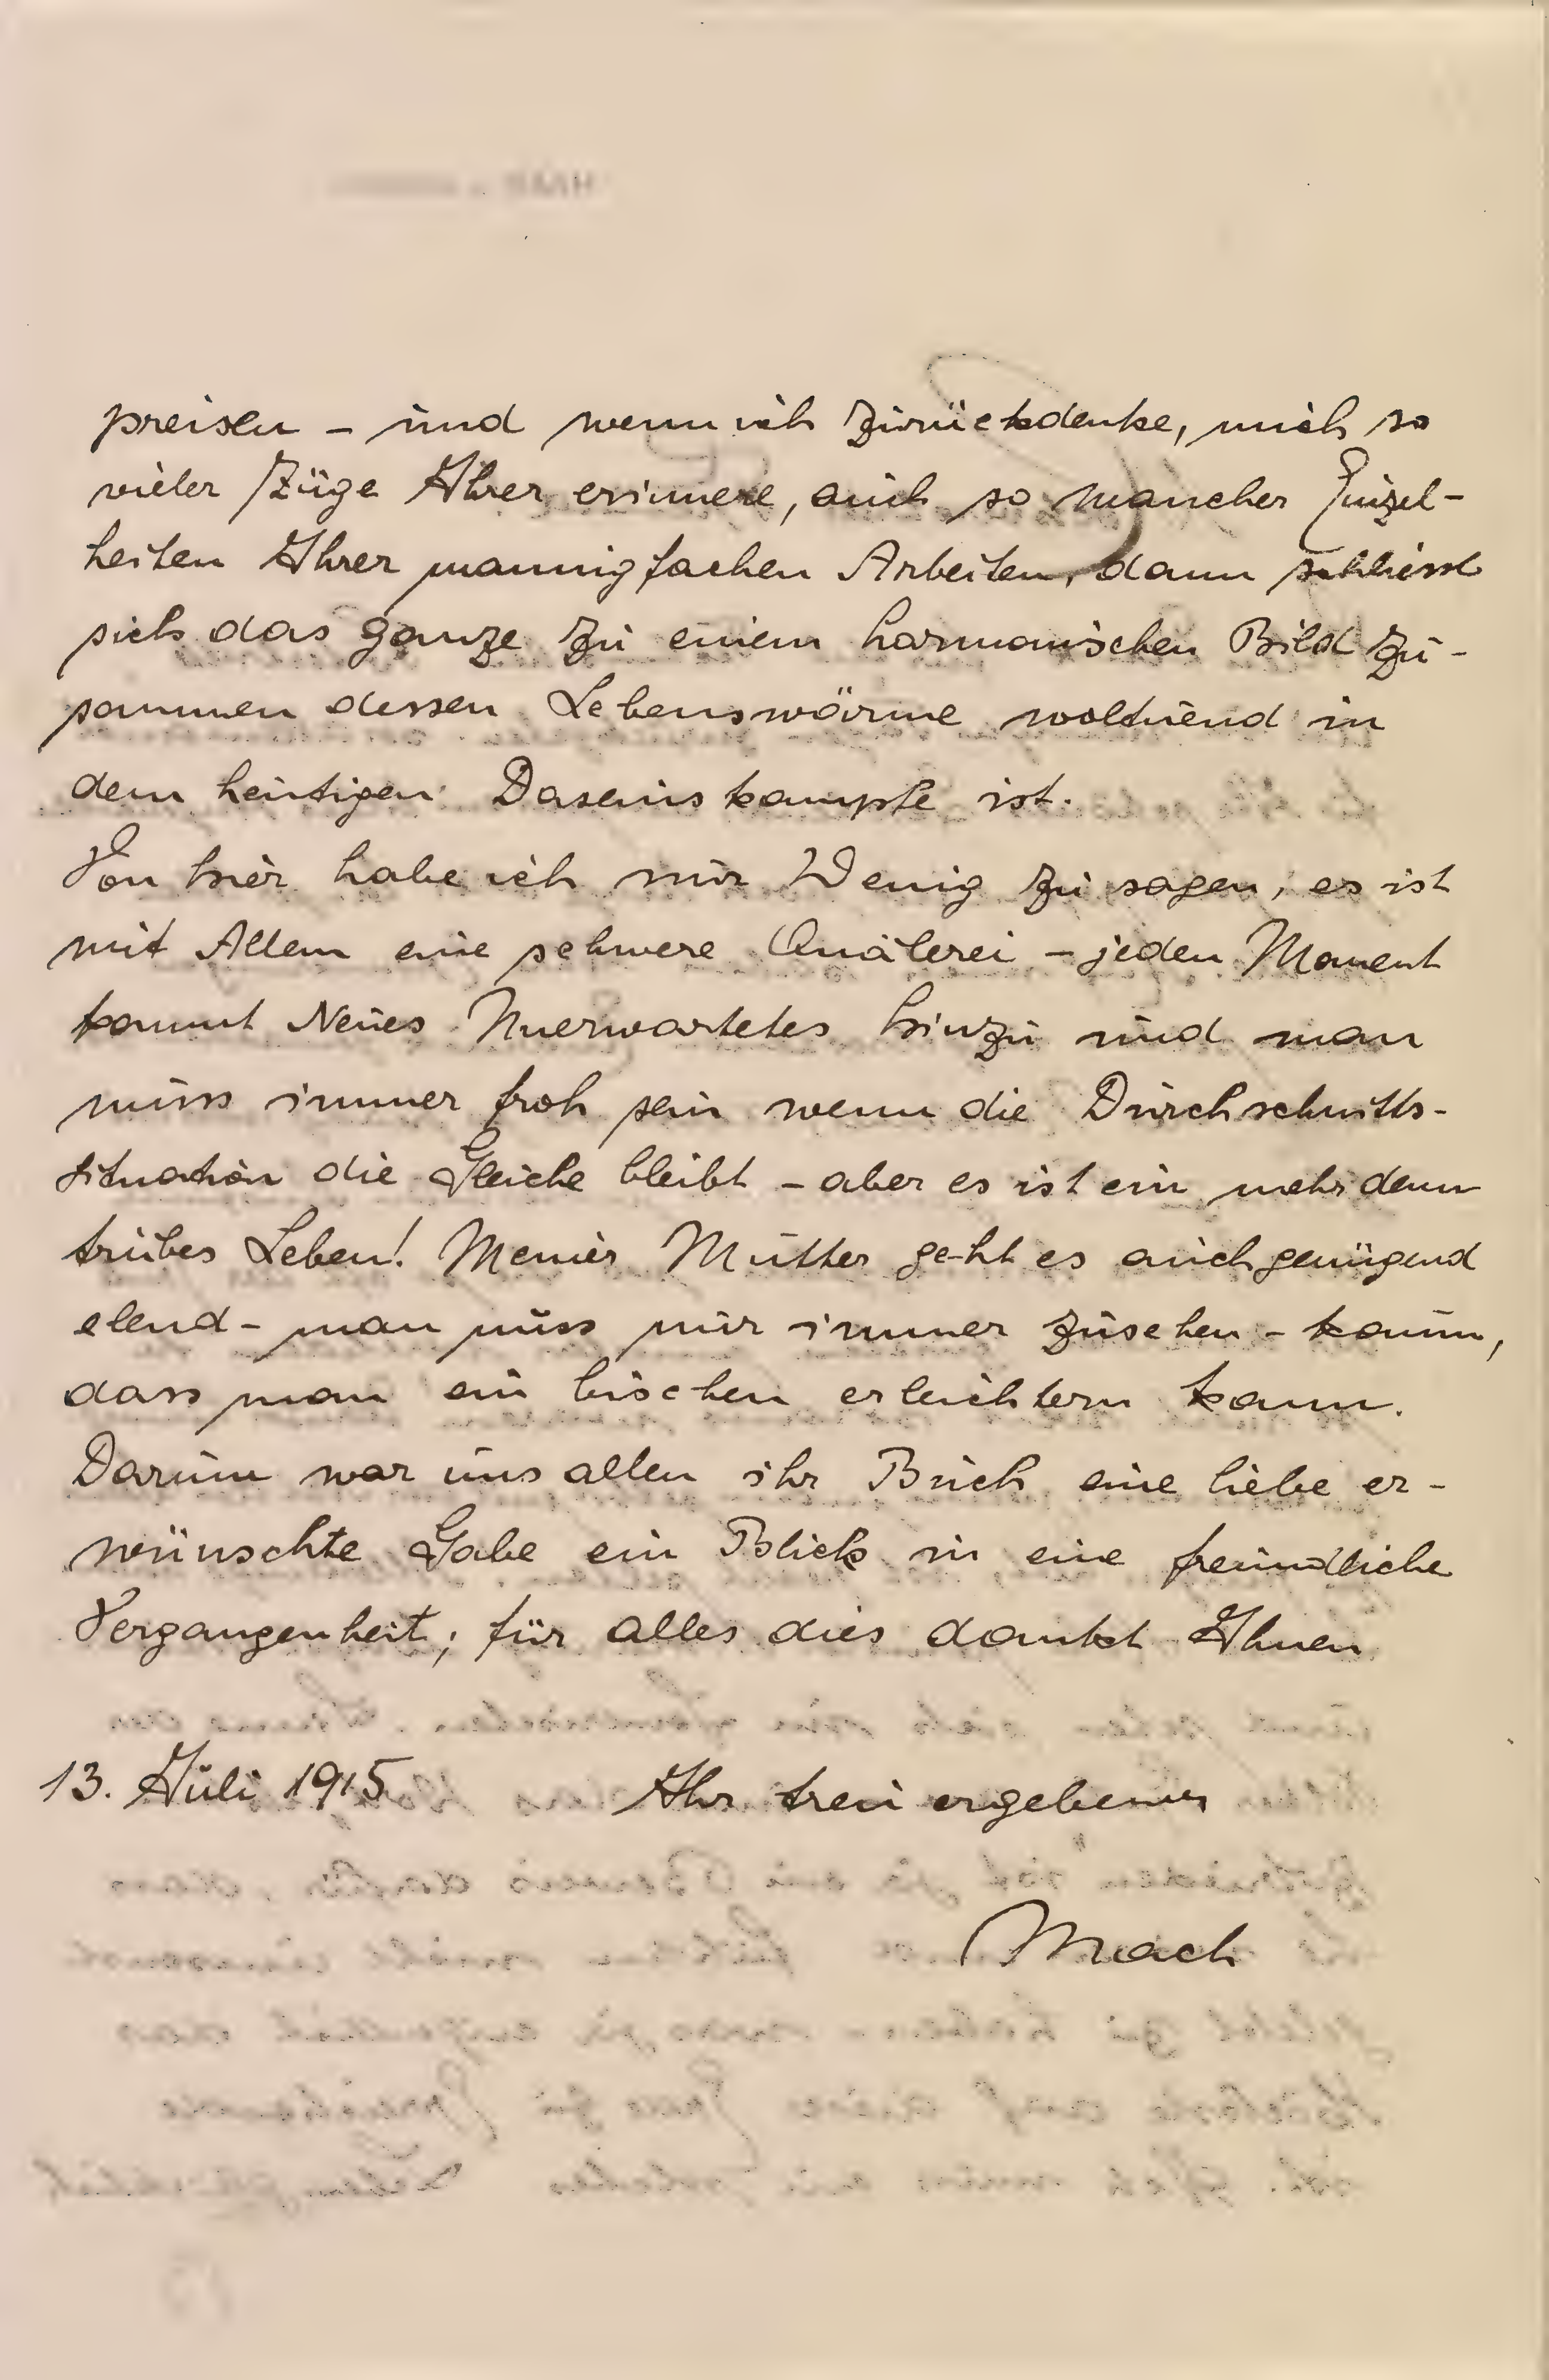 preisen – und wenn ich zurückdenke, mich so
vieler Züge Ihrer erinnere, auch so mancher Einzel-
heiten Ihrer mannigfachen Arbeiten, dann schliesst
sich das ganze zu einem harmonischen Bild zu-
sammen dessen Lebenswärme woltuend in
dem heutigen Daseinskampfe ist.
Von hier habe ich nur Wenig zu sagen, es ist
mit Allem eine schwere Quälerei – jeden Moment
kommt Neues Unerwartetes hinzu und man
muss immer froh sein wenn die Durchschnitts-
situation die Gleiche bleibt – aber es ist ein mehr denn
trübes Leben! Meiner Mutter geht es auch genügend
elend – man muss nur immer zusehen – kaum,
dass man ein bischen erleichtern kann.
Darum war uns allen ihr Buch eine liebe er-
wünschte Gabe ein Blick in eine freundliche
Vergangenheit; für alles dies dankt Ihnen
13. Juli 1915 Ihr treu ergebener
Mach